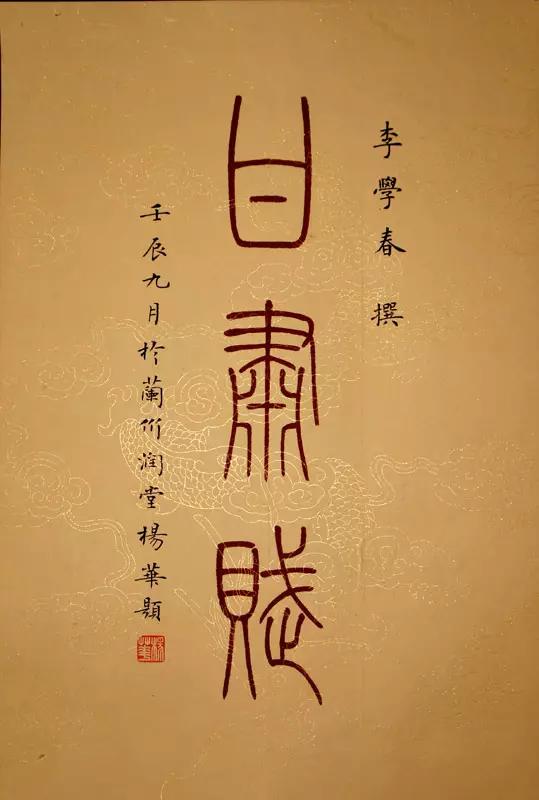 李學春 撰
甘肅賦
壬辰九月於蘭州潤堂楊華題
楊華